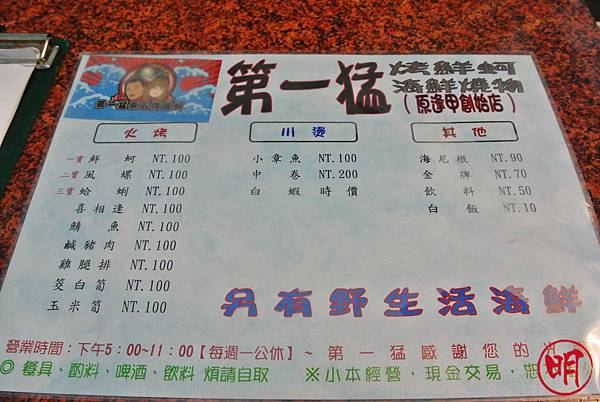 第一猛
海鮮燒物
(原逢甲創始店)
火烤
一寶 鮮蚵 NT.100
二寶 鳳螺 NT.100
三寶 蛤蜊 NT.100
喜相逢 NT.100
鯖魚 NT.100
鹹豬肉 NT.100
雞腿排 NT.100
茭白筍 NT.100
玉米筍 NT.100
川燙
小章魚 NT.100
中卷 NT.200
白蝦 時價
其他
海尼根 NT.90
金牌 NT.70
飲料 NT.50
白飯 NT.10
另有野生活海鮮
營業時間:下午5:00~11:00【每週一公休】~ 第一猛感謝您的
◎ 餐具、酌料、啤酒、飲料 煩請自取 ※小本經營,現金交易,恕
明